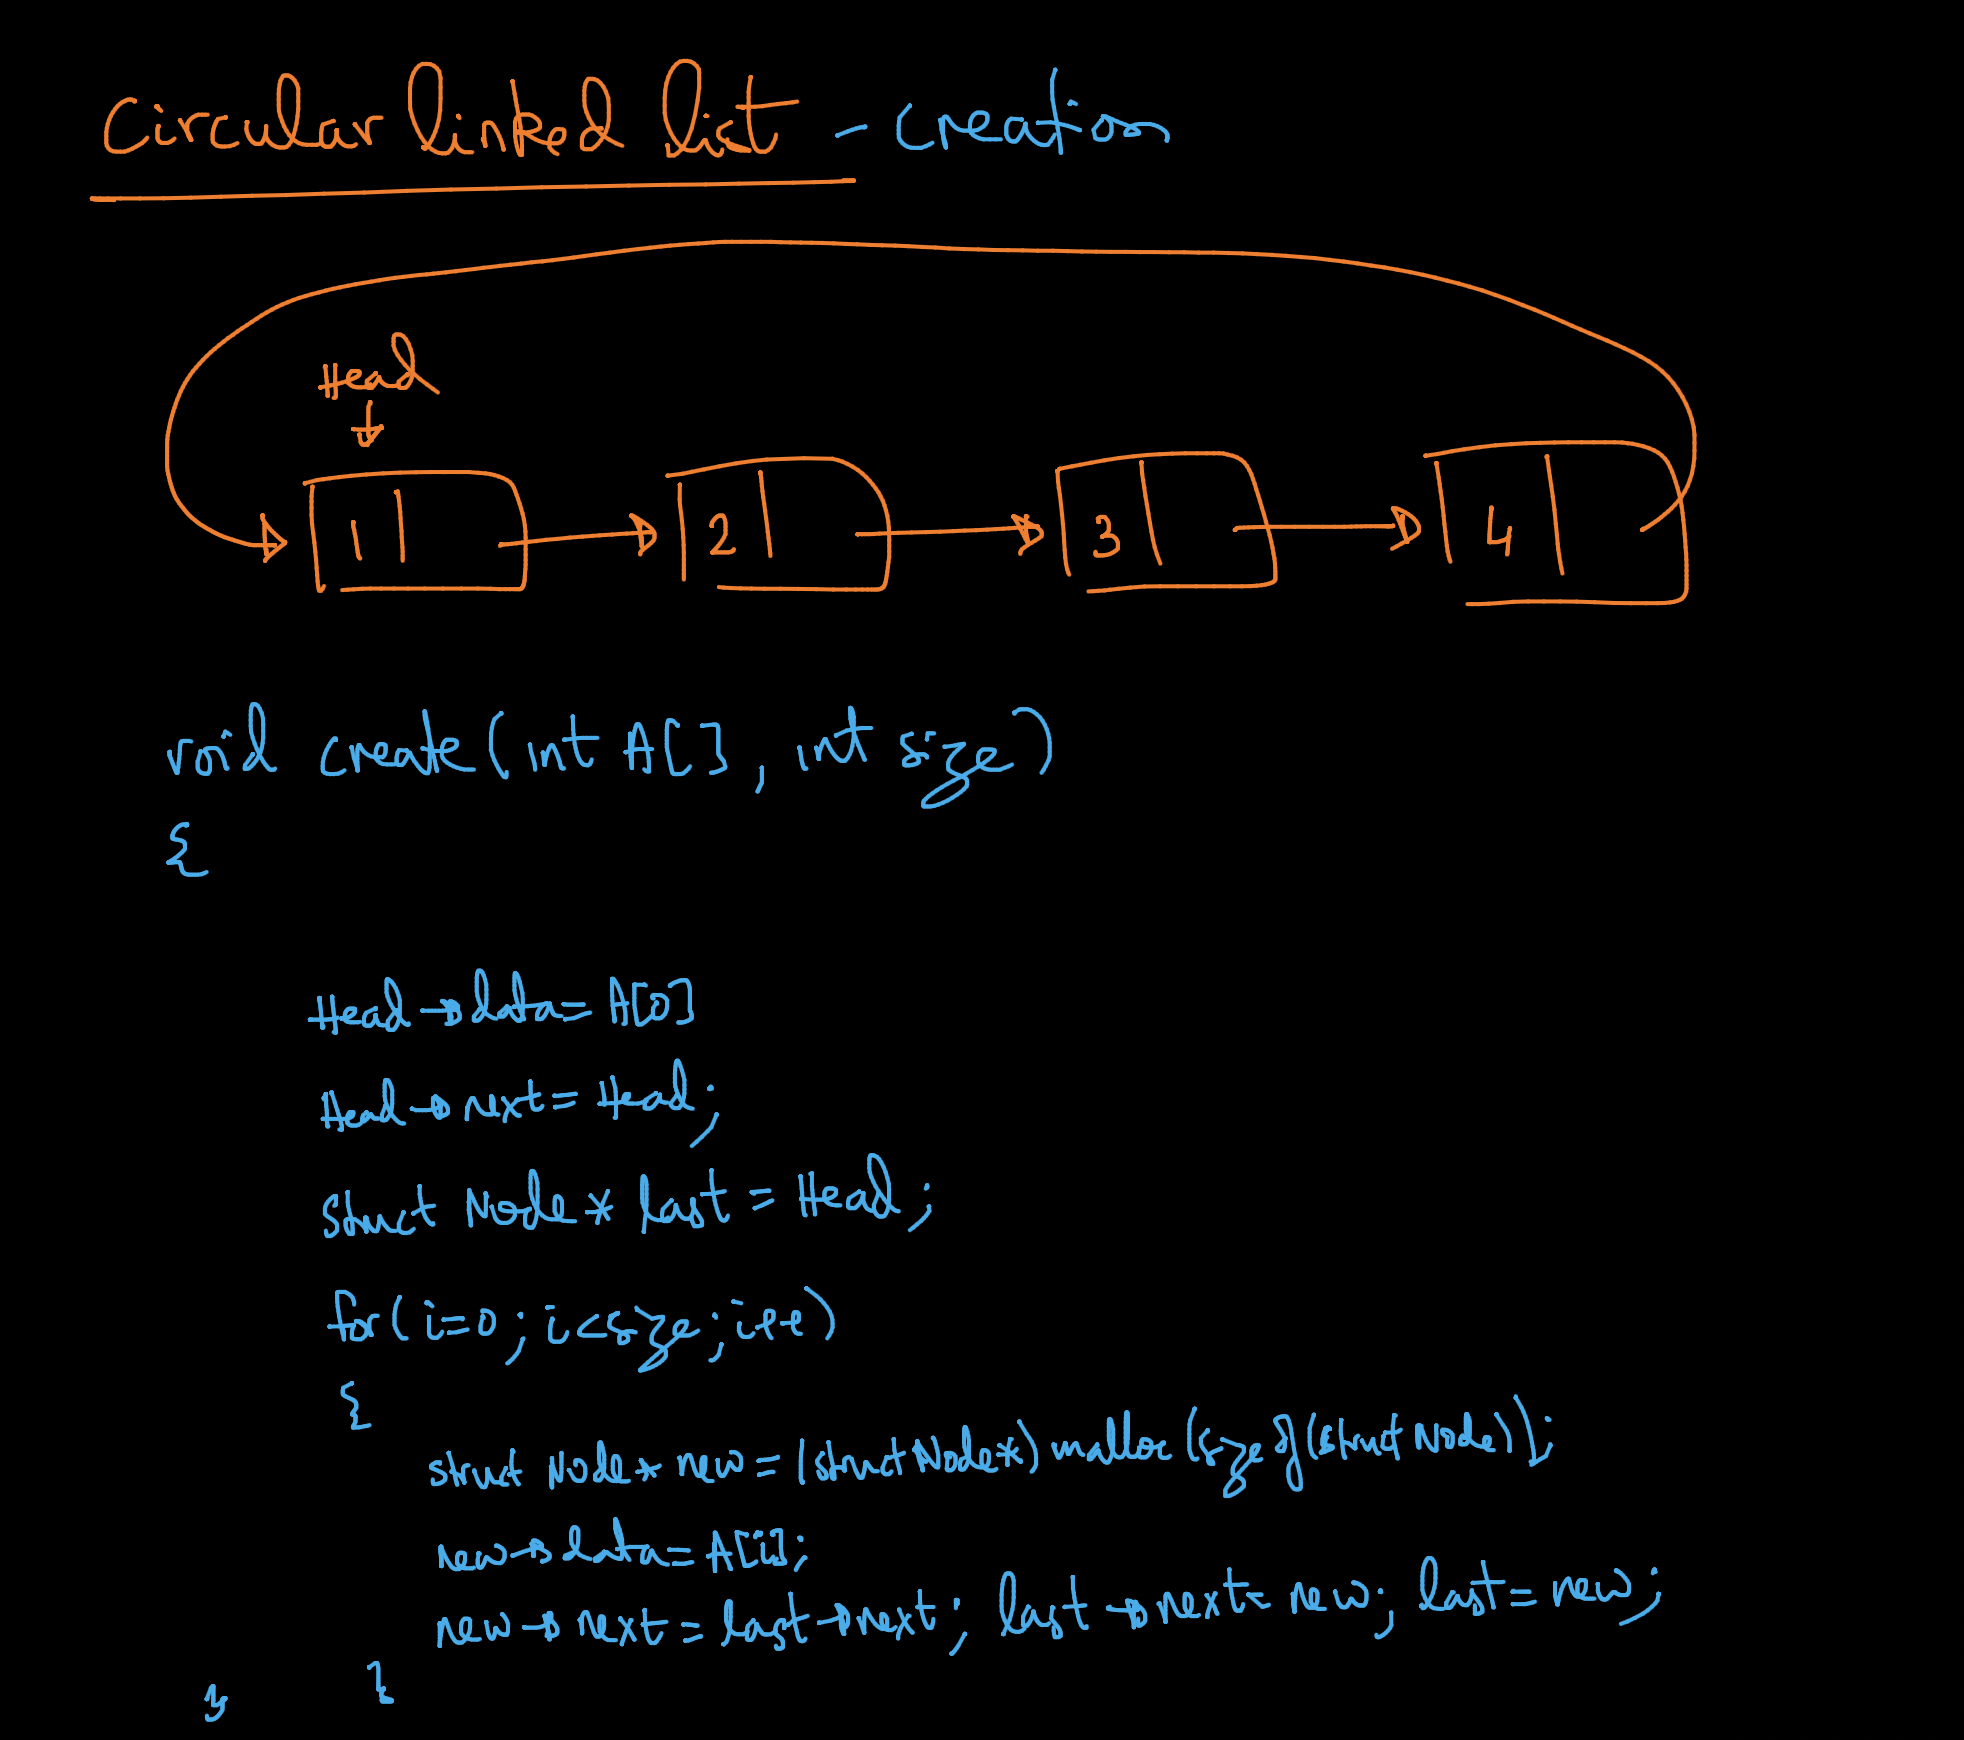 Circular linked list - creation
Head
1 2 3 4
void create(int A[], int size)
{
Head→data= A[0]
Head→next= Head;
struct Node* last = Head;
for(i=0; i<size; i++)
{
struct Node* new = (struct Node*) malloc(sizeof(struct Node));
new→data= A[i];
new→next= last→next; last→next= new; last= new;
}
}